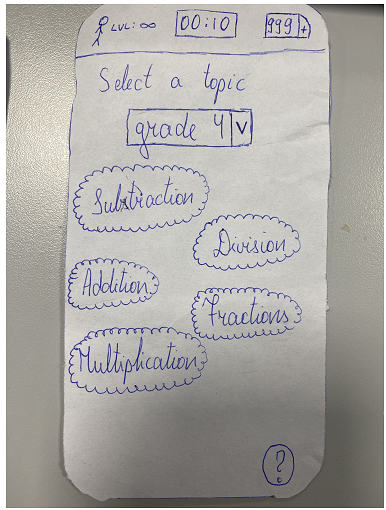 LVL: ∞ 00:10 999+
Select a topic
grade 4 V
Substraction
Division
Addition
Fractions
Multiplication
?